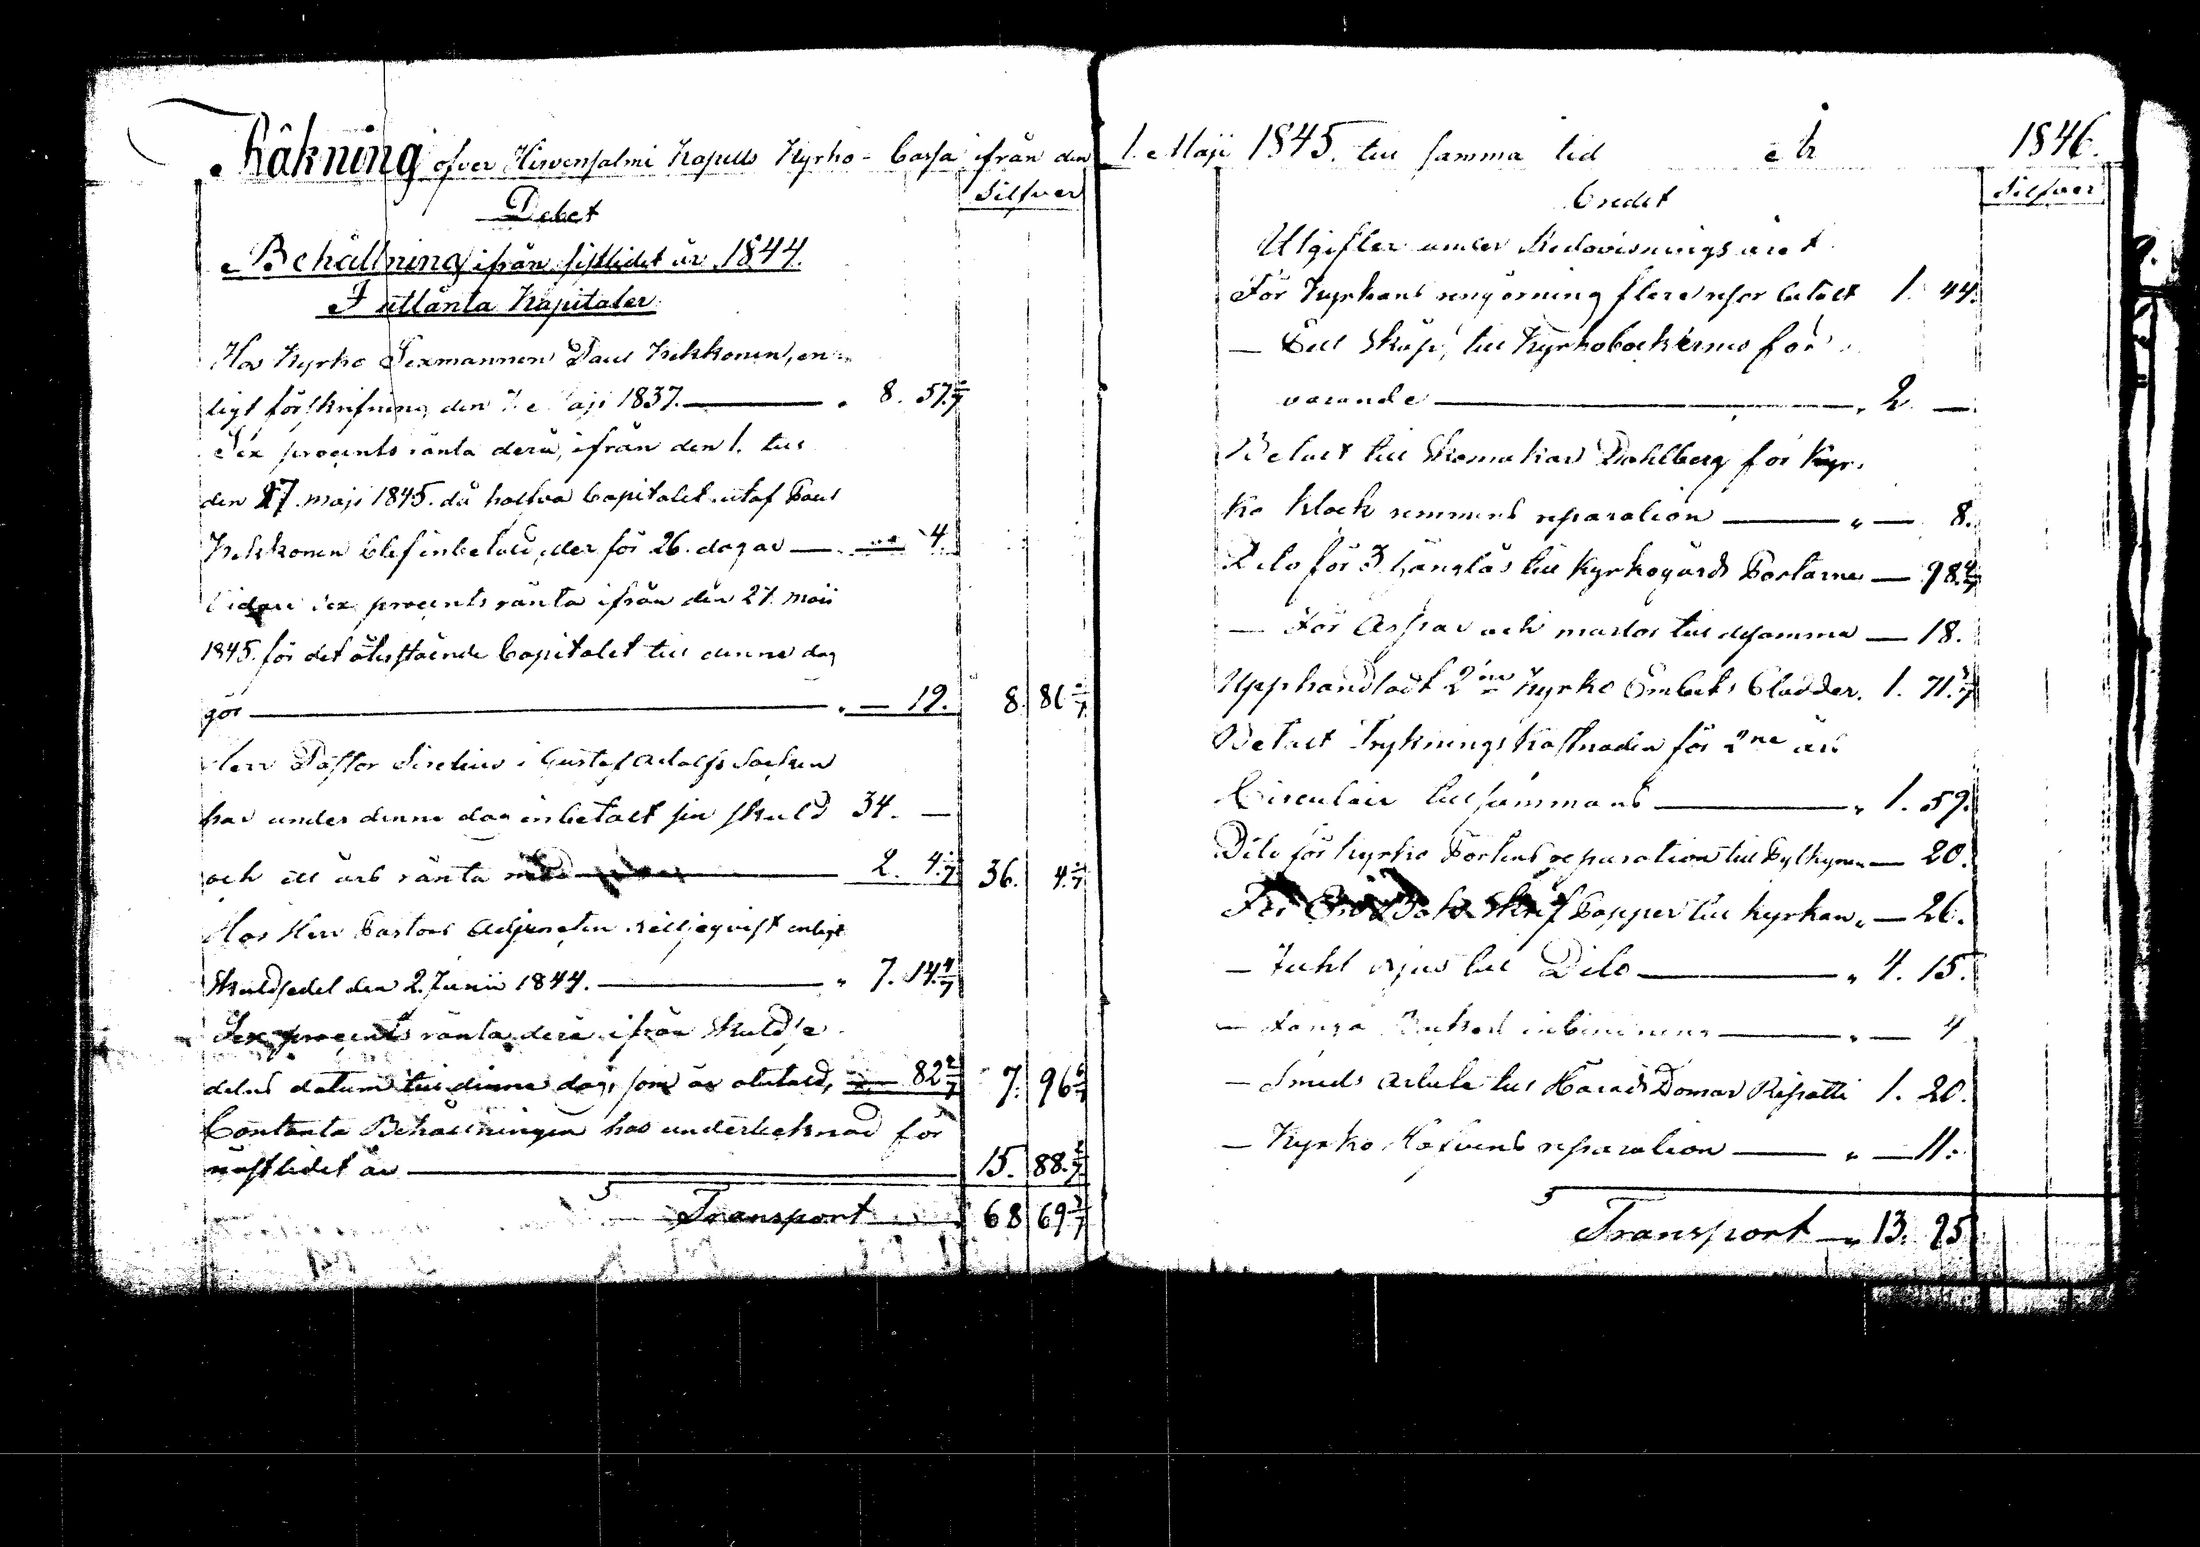 Räkning öfver Hirvensalmi Kapells Kyrko-Cassa ifrån den
Silfver
Debet
Behållning ifrån sistlidet år 1844.
I utlånta Kapitaler.
Hos Kyrko Sexmannen Paul Kekkonen, en-
ligt förskrifning den 1. Maji 1837. 8. 57 1/7
Sex procents ränta derå, ifrån den 1. till
den 27. maji 1845. då halfva Capitalet utaf Paul
Kekkonen blef inbetald, der för 26. dagar — 4.
Vidare sex procents ränta ifrån den 27. maii
1845. för det återstående Capitalet till denne dag
gör — 19. 8. 80
Herr Pastor Sirelius i Gustaf Adolfs Socken
har under denne dag inbetalt sin skuld 34. —
och ett års ränta med 2. 4 36. 4
Hos Herr Pastors Adjuncten Lilljeqvist enligt
Skuldsedel den 2. Junii 1844. 7. 14 4/7
Sex procents ränta derå ifrån Skuldse-
delns datum till denne dag, som är obetald, — 82 2/7 7. 96 6/7
Contanta Behållningen hos undertecknad för
nästlidet år 15. 88
Transport 68 69
1. Maji 1845. till samma tid år 1846.
Silfver
Credit
Utgifter under Redovisnings året
För Kyrkans rengörning flere resor betalt 1. 44.
— Ett Skåp, till Kyrkoböckernes för-
varande 2. —
Betalt till Skomakar Dahlberg för Kyr-
ko klock remmens reparation — 8.
Dito för 3 hänglås till Kyrkogårds Portarne — 98 4/7
— För Aspar och märlor till desamma — 18.
Upphandladt 2ne Kyrko Embets Bladder. 1. 71 3/7
Betalt Tryknings Kostnaden för 2ne års
Circulair tillsammans 1. 59.
Dito för Kyrko Portens reparation till Pylkynen — 20.
För Skrif Papper till kyrkan — 26.
— Talg ljus till Dito 4. 15.
— inbindning — 4
— Smeds arbete till Härads Domar Ripatti 1. 20.
— Kyrko Håfvens reparation — 11.
Transport 13. 95